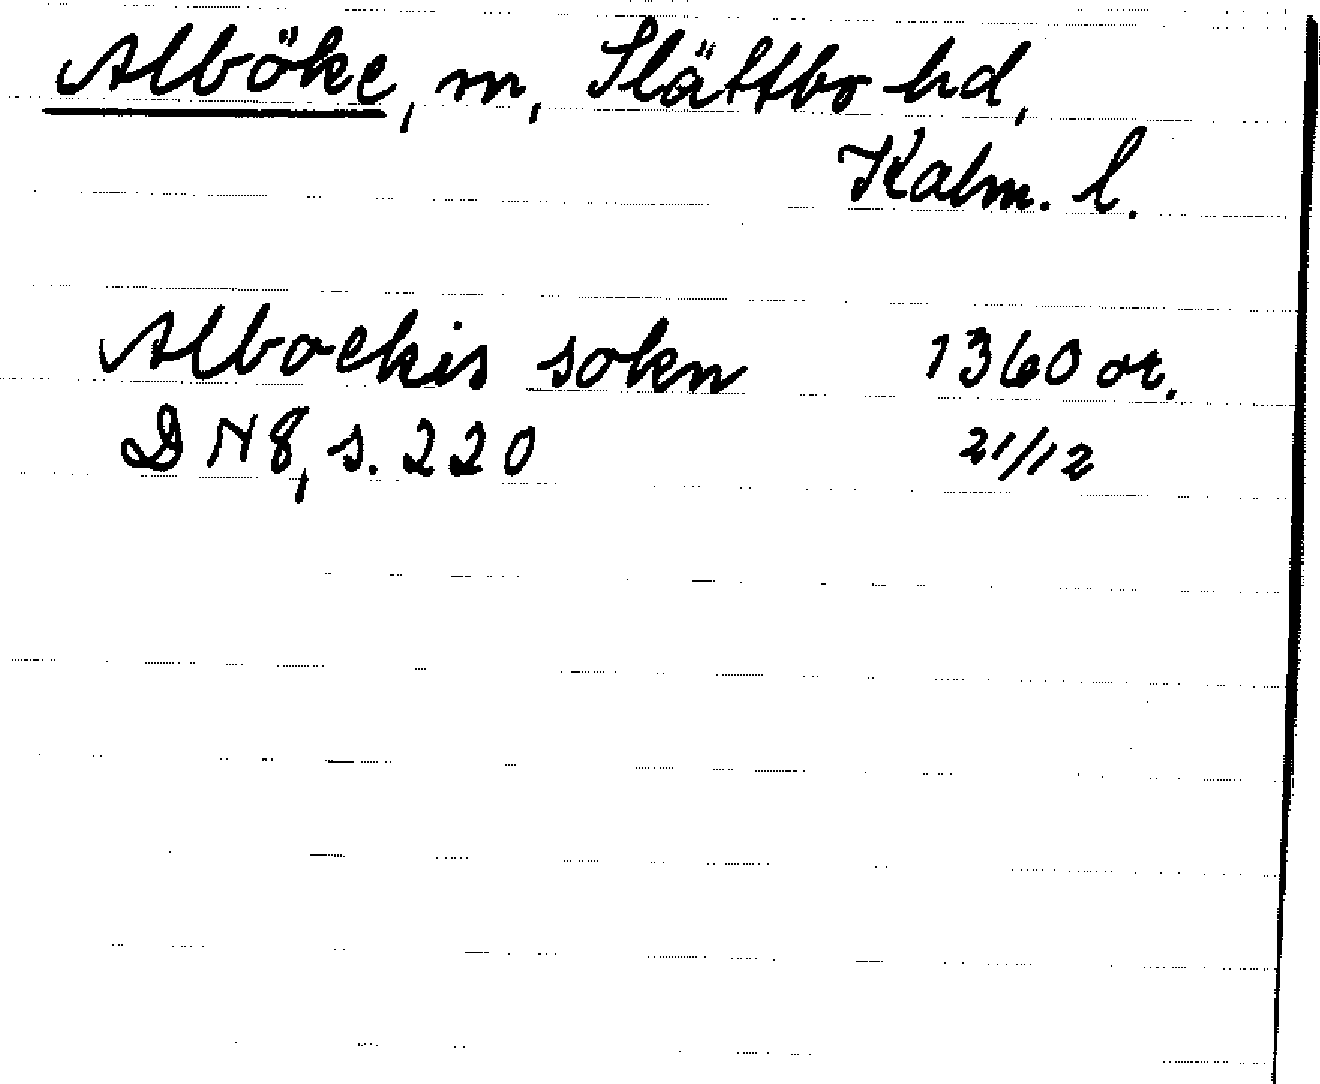 Alböke, sn, Slättbo hd,
Kalm. l.
Alboekis sokn 1360 or.
DN 8, s. 220 21/12